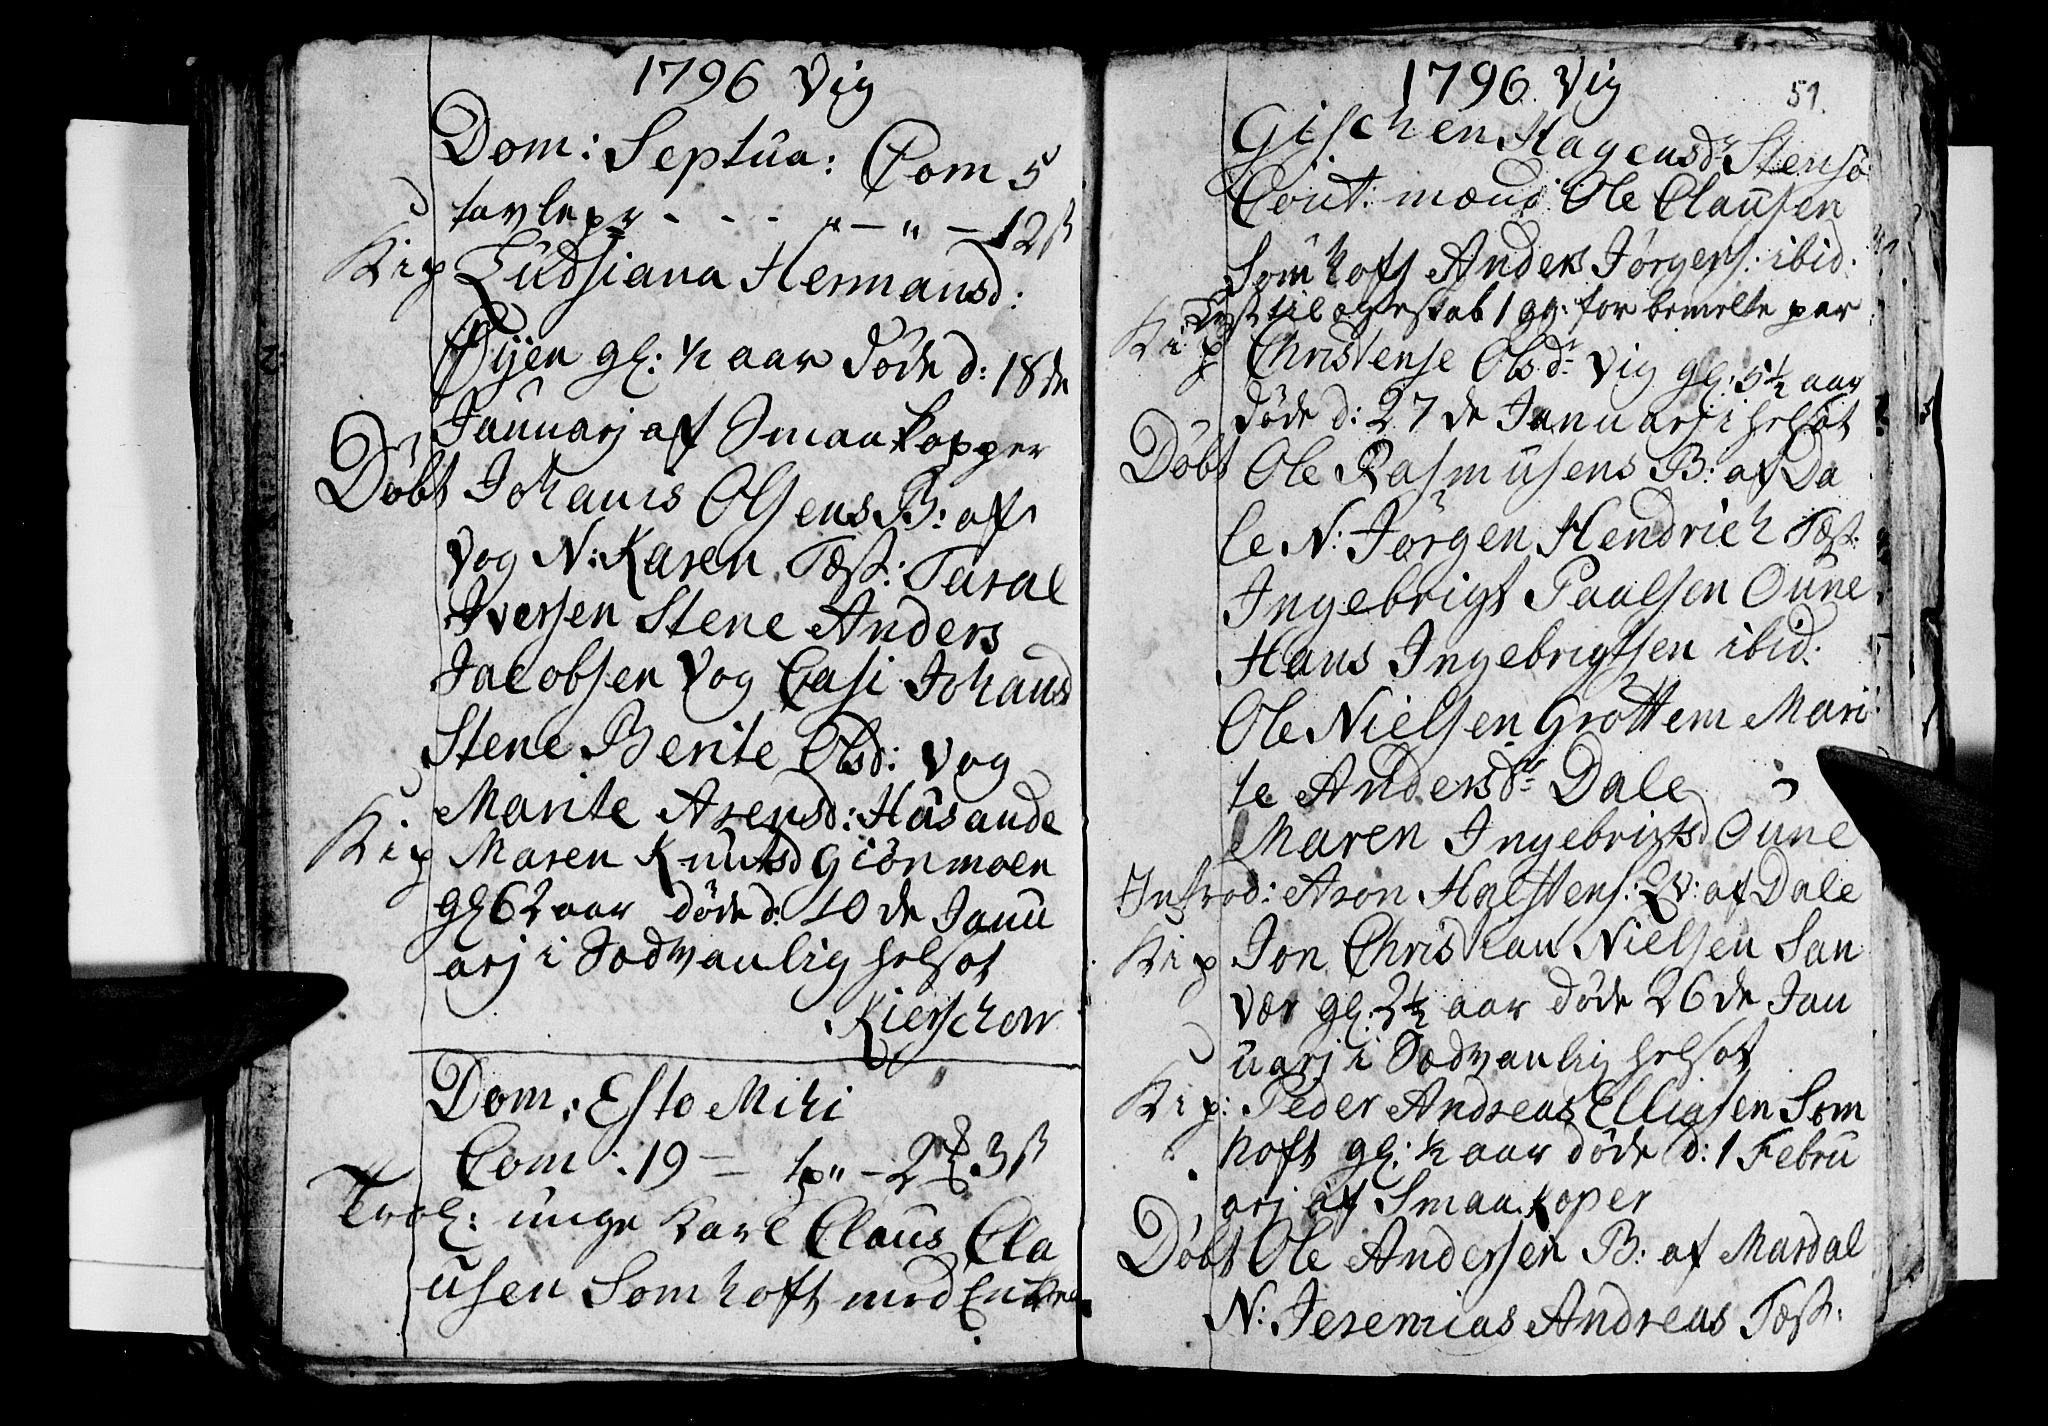 1796 Vig
Dom: Septua: Com 5
tavlepg - - - " - " - 12 ß
Kip Ludsiana Hermansd:
Øyen gl: 1/2 aar døde d: 18de
Januarj af Smaakopper
Døbt Johanis Olsens B: af
Vog N: Karen Test: Taral
Iversen Stene Anders
Jacobsen Vog Casi Johansd
Stene Berite Olsd: Vog
Marite Arensd: Husande
Kip Maren Knutsd Giönmoen
gl 62 aar døde d: 10 de Janu
arj i Sædvanlig helsot
Kierschow
Dom: Esto Mihi
Com: 19 — tp " - 2 3 ß
Trol: unge Karl Claus Cla
usen Somhoft med Enken
1796 Vig
51.
Gischen Hagensdr Stensø
Cout: mænd Ole Clausen
Somhoft Anders Jørgens: ibid:
Lyst til ægteskab 1 gg: for bemelte par
Kip Christense Olsdr Vig gl: 5 1/2 aar
døde d: 27 de Januarj i helsot
Døbt Ole Rasmusens B: af Da
le N: Jørgen Hendrich Test:
Ingebrigt Paalsen Oune
Hans Ingebrigtsen ibid:
Ole Nielsen Grøttem Mari
te Andersdr Dale
Maren Ingebrigtsd Oune
Introd: Aron Halstens: Qv: af Dale
Kip Jon Christian Nielsen San
vær gl: 2 1/2 aar døde 26 de Jan
uarj i Sædvanlig helsot
Kip: Peder Andreas Elligsen Som
hoft gl: 1/2 aar døde d: 1 Febru
arj af Smaakoper
Døbt Ole Andersen B: af Mardal
N: Jeremias Andreas Test: